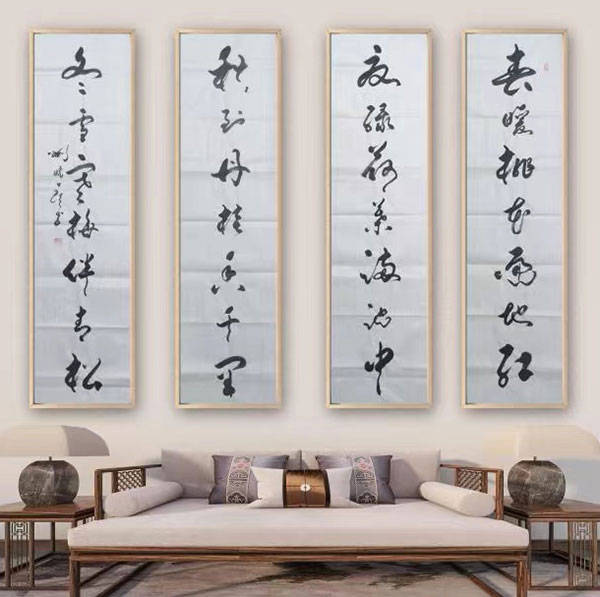 春暖桃花遍地红
夏绿荷葉满池中
秋到丹桂香千里
冬雪寒梅伴青松